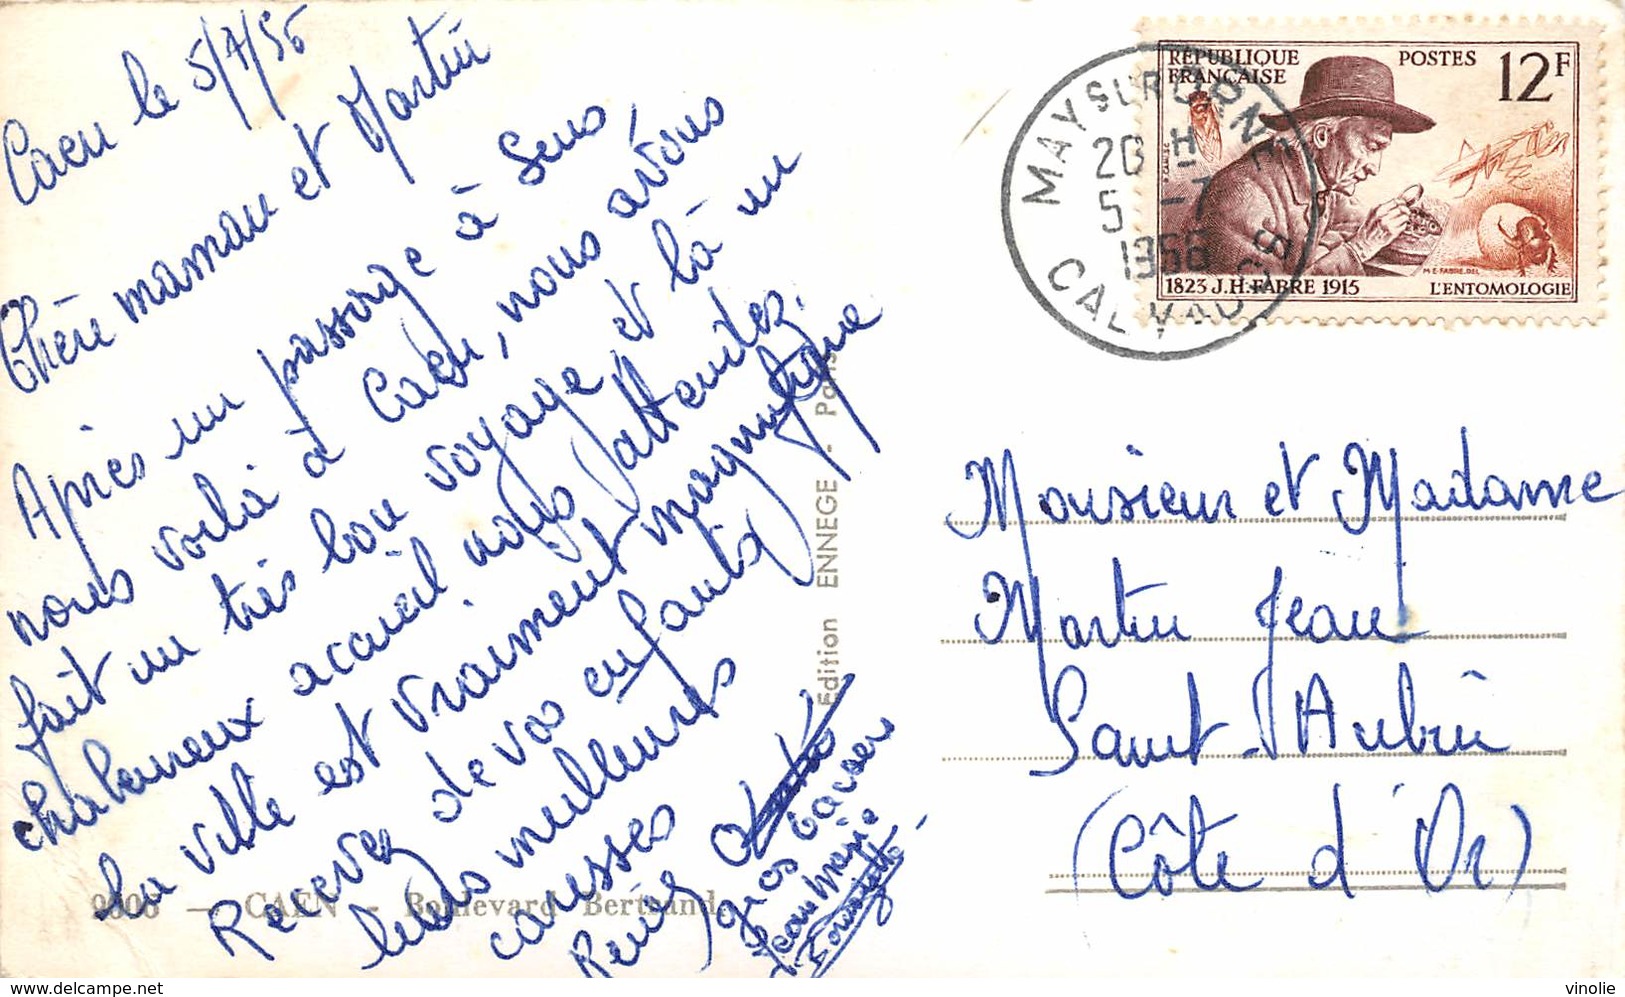 Caen le 5/7/56
Chère maman et Martin
Après un passage à Sens,
nous voilà à Caen, nous avons
fait un très bon voyage et là un
chaleureux accueil nous attendez.
La ville est vraiment magnifique
Recevez de vos enfants
leurs meilleures
caresses
gros baisers
Jean Marie
Edition ENNEGE - Paris
9606 - CAEN - Boulevard Bertrand.
RÉPUBLIQUE FRANÇAISE
POSTES
12F
1823 J.H.FABRE 1915
L'ENTOMOLOGIE
M.E.FABRE.DEL
MAY SUR ORNE
20 H
5 - 7
1956
CALVADOS
Monsieur et Madame
Martin Jean
Saint-Aubin
(Côte d'Or)
www.delcampe.net
vinolie